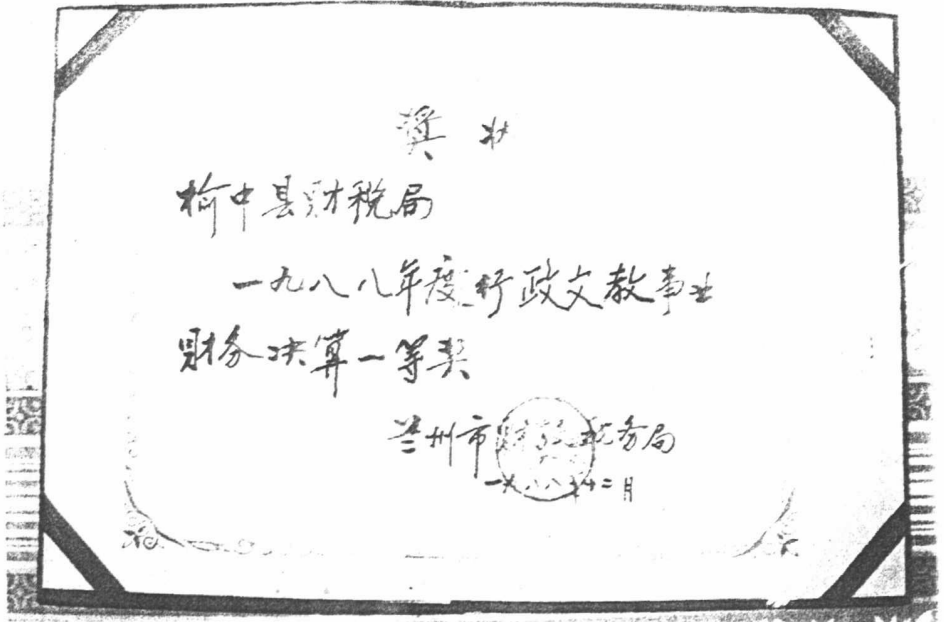 奖状
榆中县财税局
一九八八年度行政文教事业
财务决算一等奖
兰州市财政税务局
一九八八年十二月